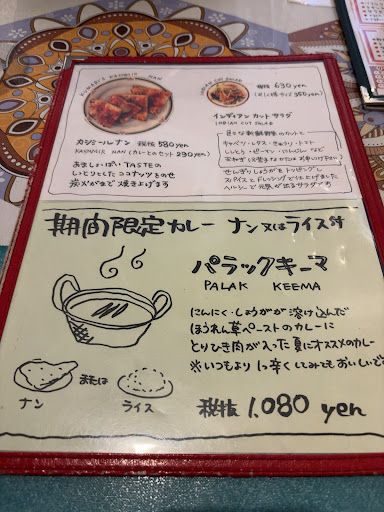 KUMARI'S KASHMIR NAN
カシミールナン 税抜 580yen
KASHMIR NAN (カレーとのセット 290yen)
あましょっぱいTASTEの
しっとりとしたココナッツをのせ
炭火がまで焼き上げます
INDIAN CUT SALAD
税抜 630yen
350yen)
インディアン カット サラダ
INDIAN CUT SALAD
色々な新鮮野菜のカットと
キャベツ・レタス・きゅうり・トマト
しょうとう・ピーマン・にんじん など
せんぎりしょうがをトッピングし
スパイスとドレッシングで仕上げました
ヘルシーで元気が出るサラダです
期間限定カレー ナン又はライス付
パラックキーマ
PALAK KEEMA
にんにく・しょうがが溶け込んだ
ほうれん草ペーストのカレーに
とりひき肉が入った夏にオススメのカレー
※いつもより1つ辛くしてみてもおいしいで
ナン または ライス
税抜 1,080 yen